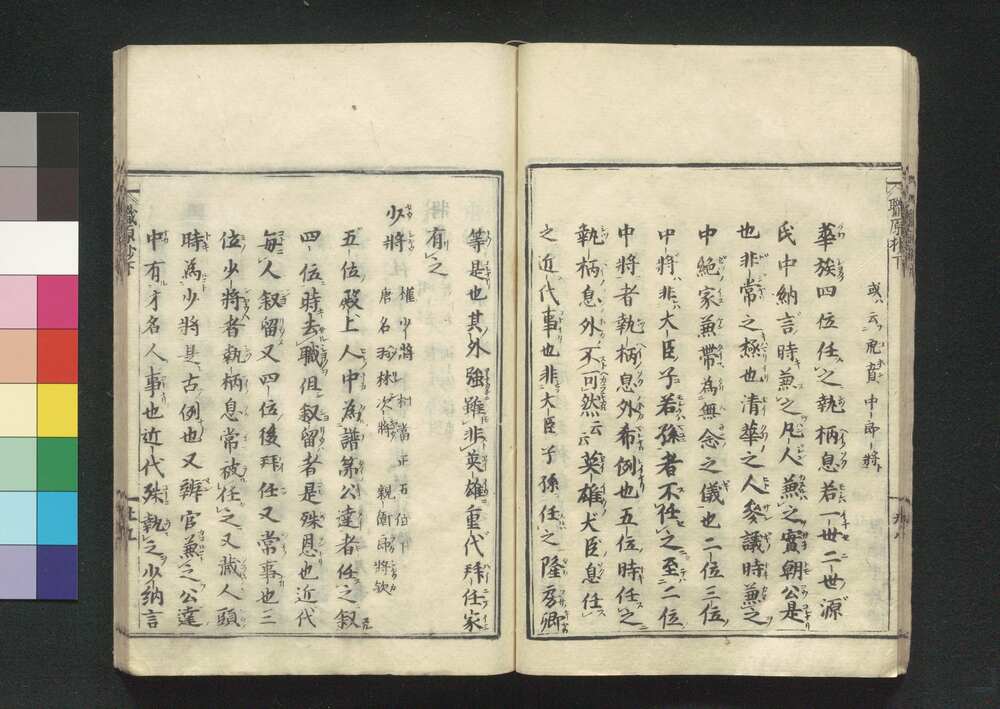 職原抄下
或云虎賁中郎將
華族四位任之執柄息若一世二世源
氏中納言時兼之凡人兼之實朝公是
也非常之極也清華之人參議時兼之
中絶家兼帶為無念之儀也二位三位
中將非大臣子若孫者不任之至二位
中將者執柄息外希例也五位時任之
執柄息外不可然云云英雄大臣息任
之近代事也非大臣子孫任之隆房卿
等是也其外強雖非英雄重代拜任家
將有之
少將 權少將 相當正五位下
唐名羽林次將 親衛郎將欤
五位殿上人中為譜第公達者任之叙
四位時去職但叙留者是殊恩也近代
毎人叙留又四位後拜任又常事也三
位少將者執柄息常被任之又藏人頭
時為少將是古例也又辨官兼之公達
中有才名人事也近代殊執之少納言
職原抄下